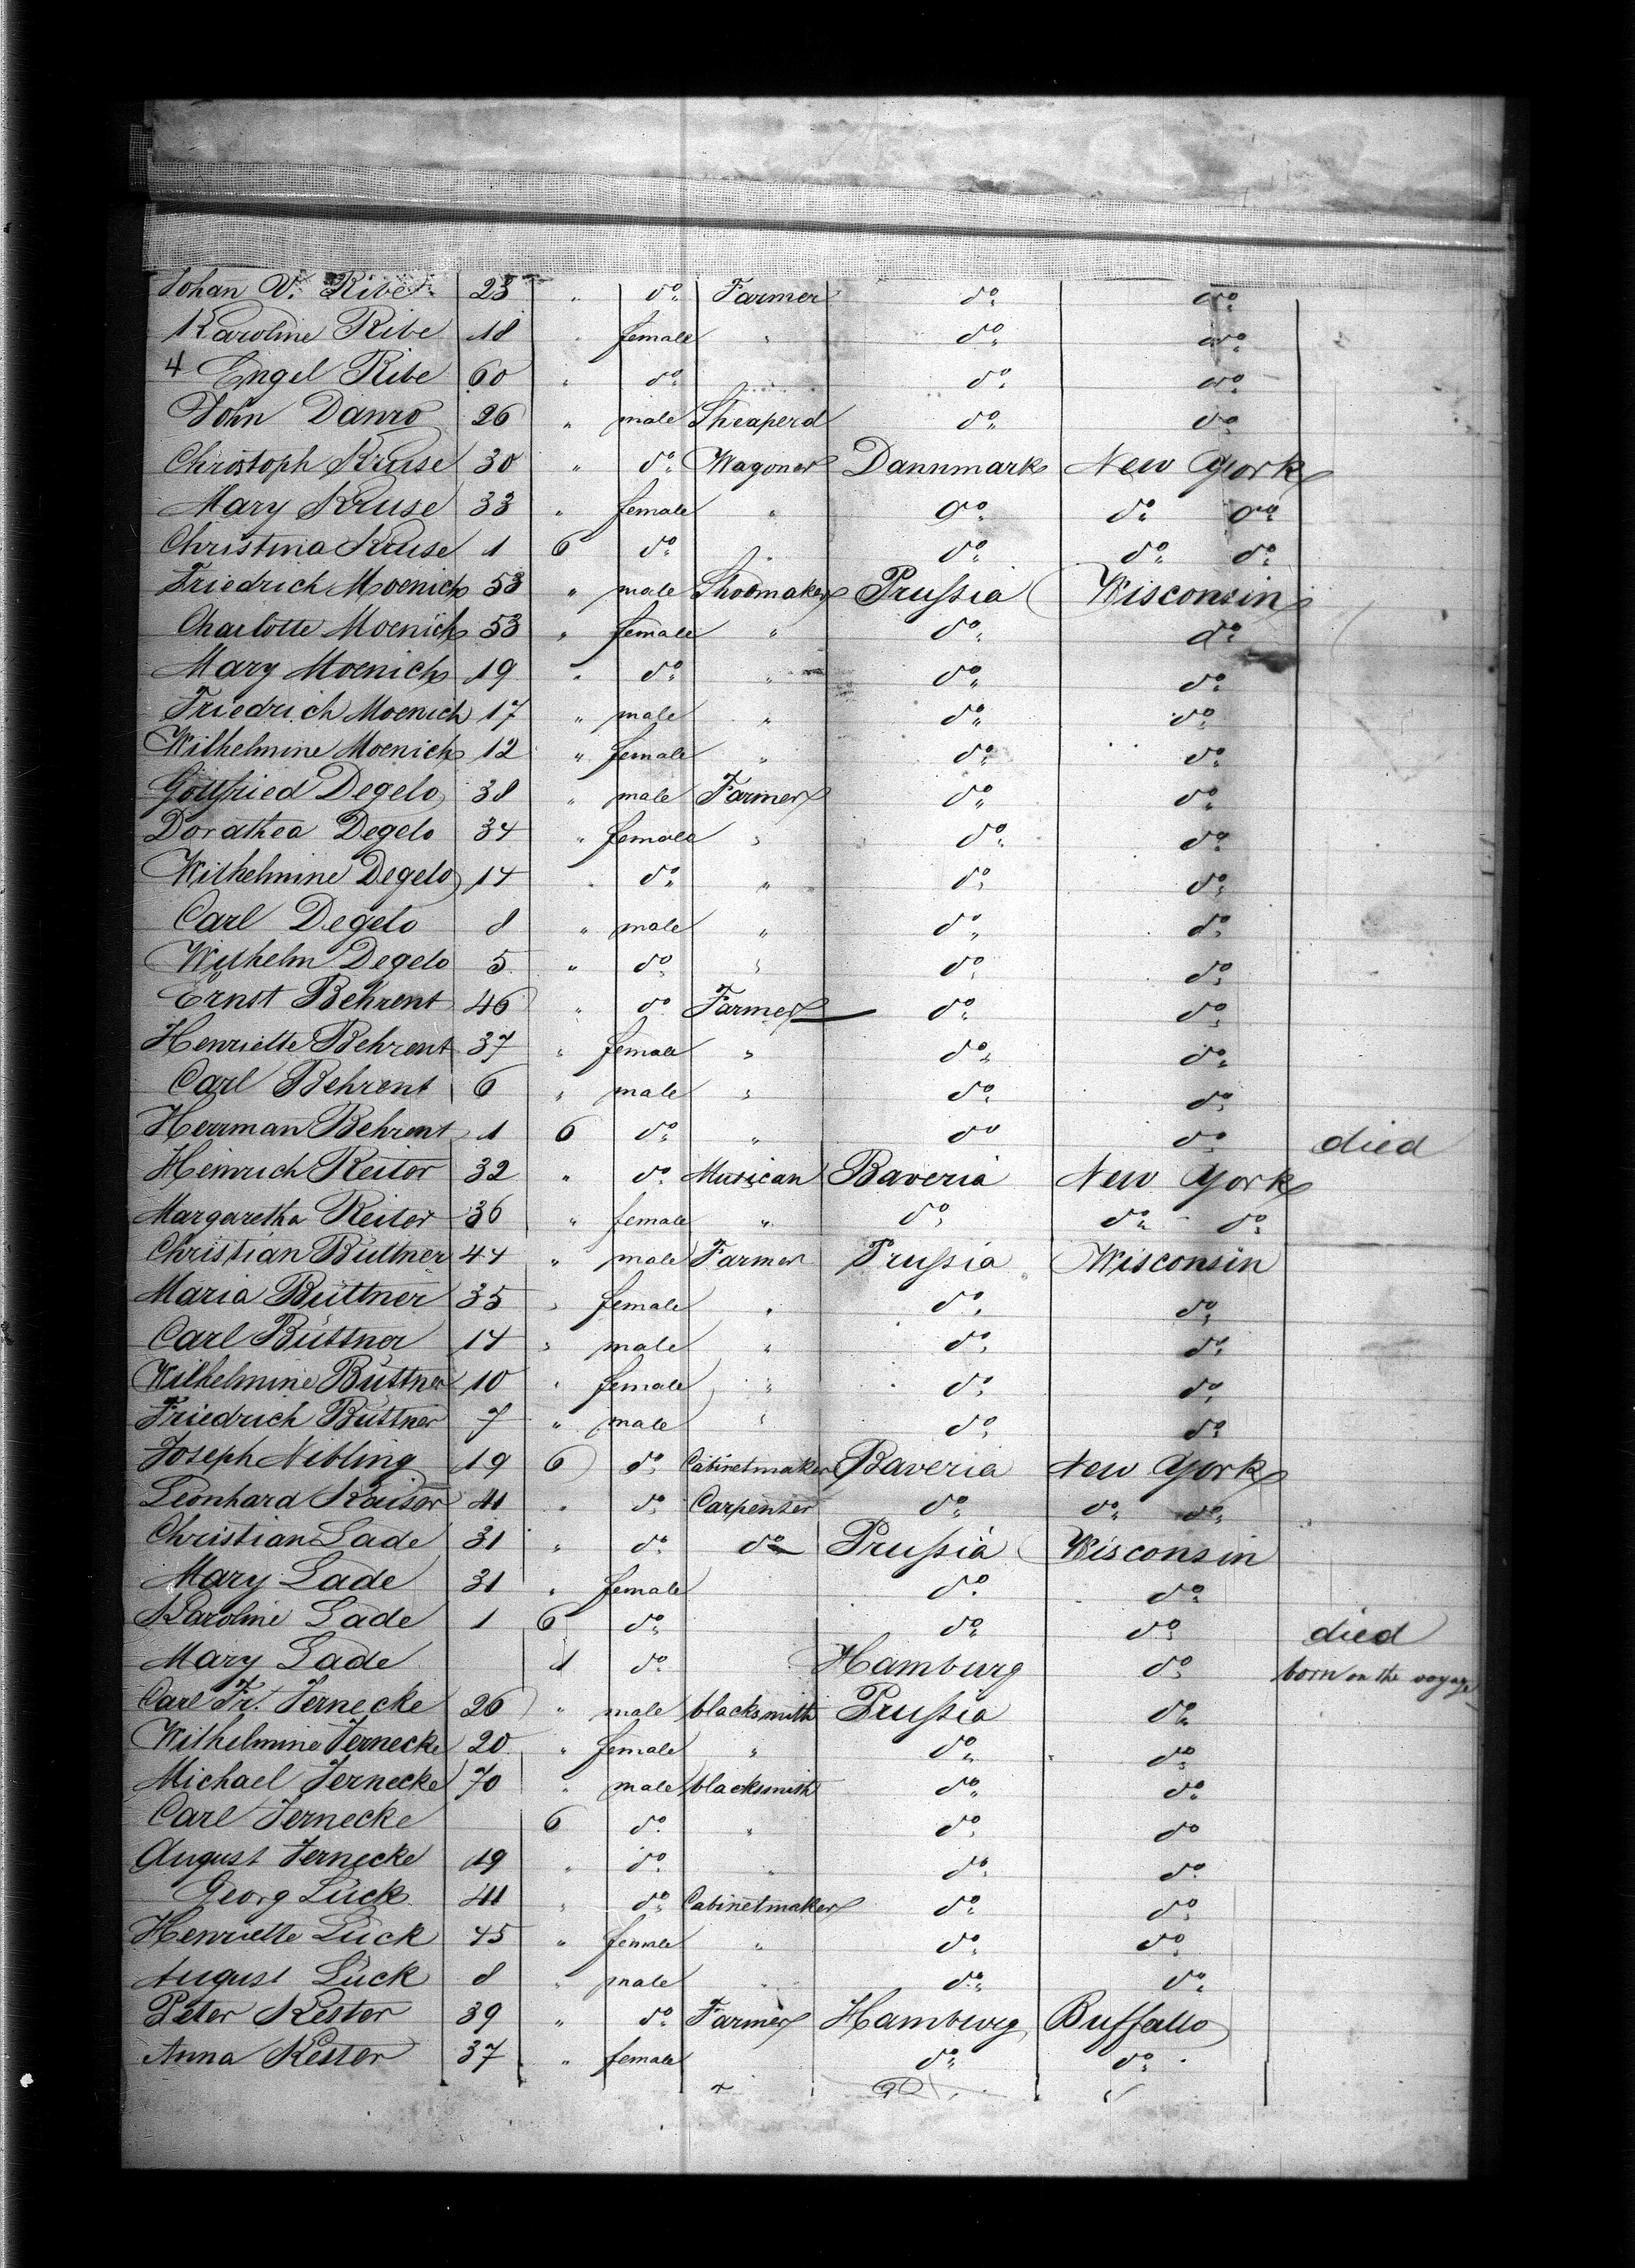 Johan V. Ribe 23 " do Farmer do do
Karoline Ribe 18 " female " do do
4 Engel Ribe 60 " do do do
John Danro 26 " male Sheaperd do do
Christoph Kruse 30 " do Wagoner Dannmark New York
Mary Kruse 33 " female " do do do
Christina Kruse 1 6 do " do do do
Friedrich Moenich 53 " male Shoemaker Prussia Wisconsin
Charlotte Moenich 53 " female " do do
Mary Moenich 19 " do " do do
Friedrich Moenich 17 " male " do do
Wilhelmine Moenich 12 " female " do do
Gottfried Degelo 38 " male Farmer do do
Dorathea Degelo 34 " female " do do
Wilhelmine Degelo 14 " do " do do
Carl Degelo 8 " male " do do
Wilhelm Degelo 5 " do " do do
Ernst Behrent 46 " do Farmer do do
Henriette Behrent 37 " female " do do
Carl Behrent 6 " male " do do
Herrman Behrent 1 6 do " do do died
Heinrich Reiter 32 " do Musican Baveria New York
Margaretha Reiter 36 " female " do do do
Christian Büttner 44 " male Farmer Prussia Wisconsin
Maria Büttner 35 " female " do do
Carl Büttner 14 " male " do do
Wilhelmine Büttner 10 " female " do do
Friedrich Büttner 7 " male " do do
Joseph Nebling 19 6 do Cabinetmaker Baveria New York
Leonhard Kaiser 41 " do Carpenter do do do
Christian Lade 31 " do do Prussia Wisconsin
Mary Lade 31 " female do do
Karoline Lade 1 6 do do do died
Mary Lade 1 do Hamburg do born on the voyage
Carl Fr. Jernecke 26 " male blacksmith Prussia do
Wilhelmine Jernecke 20 " female " do do
Michael Jernecke 70 " male blacksmith do do
Carl Jernecke 6 do " do do
August Jernecke 19 " do " do do
Georg Lück 41 " do Cabinetmaker do do
Henriette Lück 45 " female " do do
August Lück 8 " male " do do
Peter Kester 39 " do Farmer Hamburg Buffallo
Anna Kester 37 " female do do